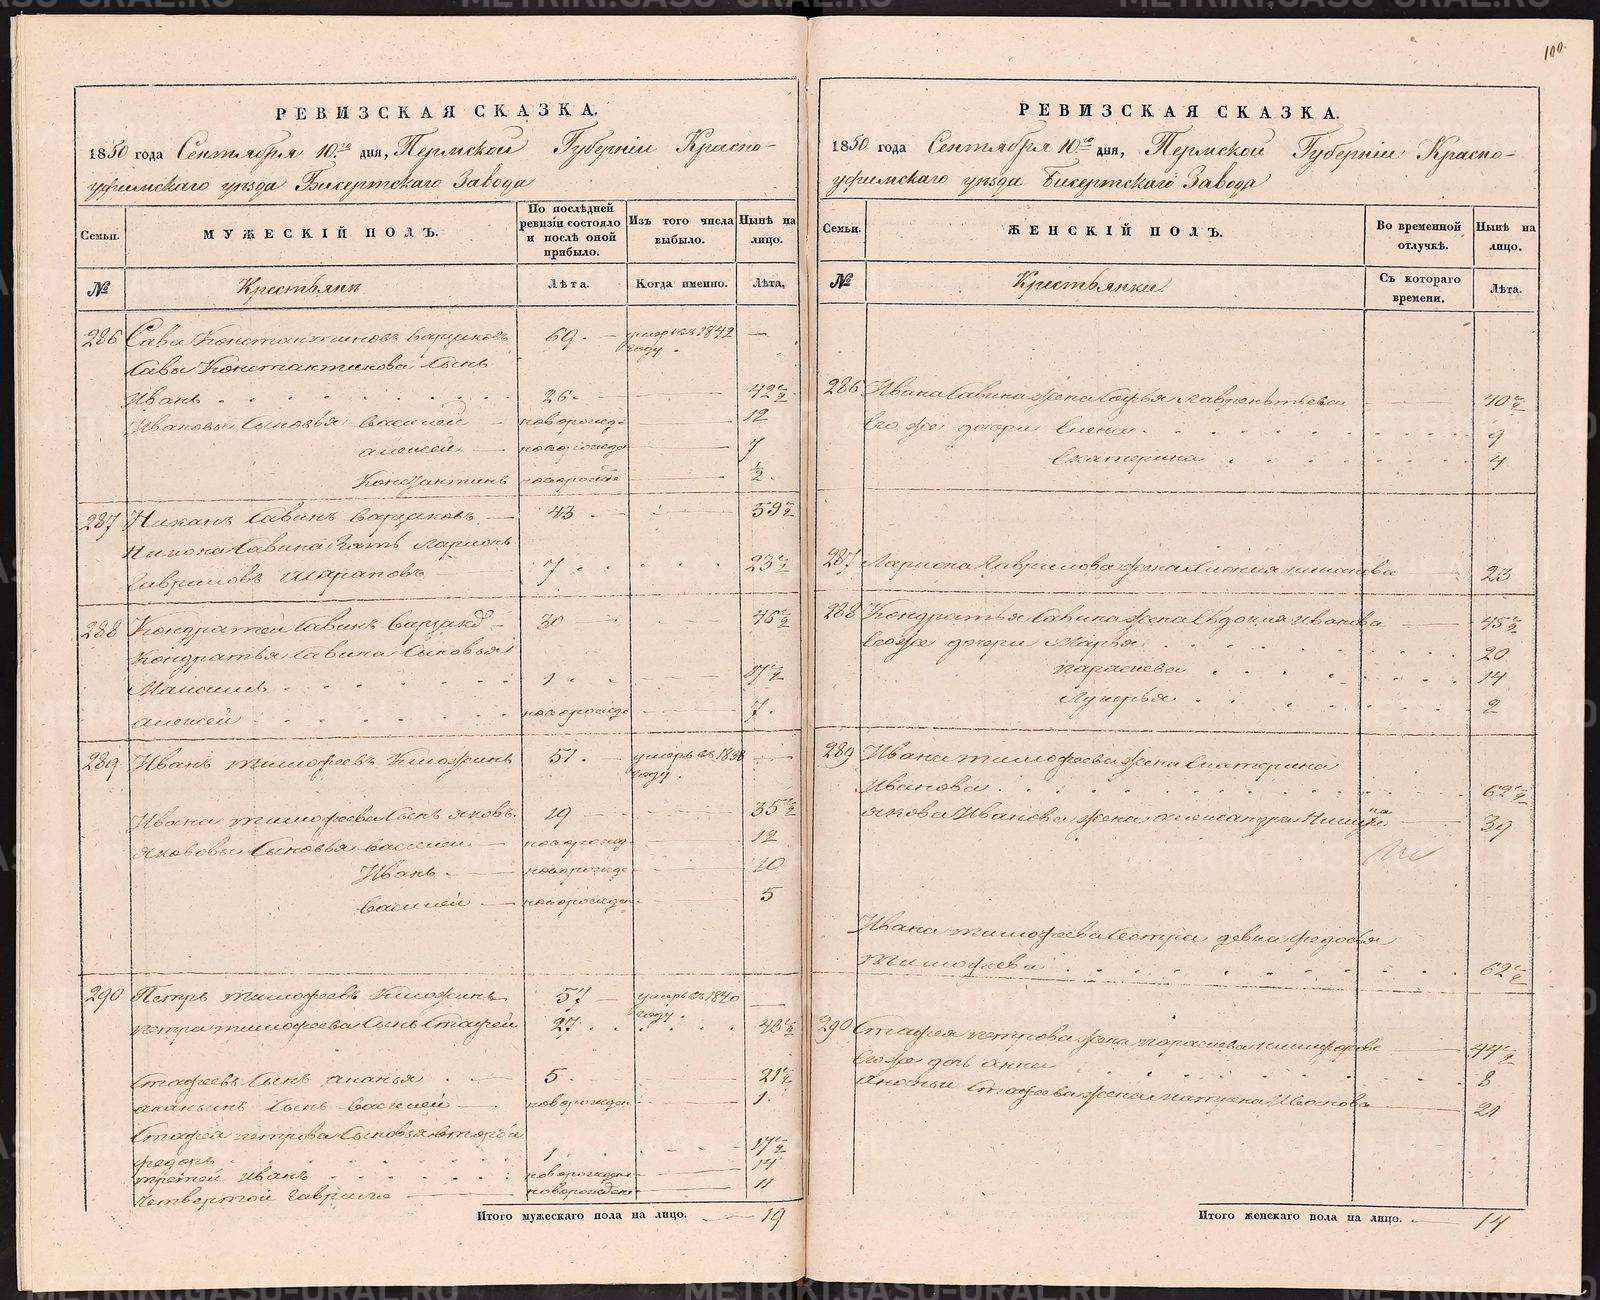 100.
РЕВИЗСКАЯ СКАЗКА.
1850 года Сентября 10го дня, Пермской Губерніи Красно-
уфимскаго уѣзда Бисертскаго Завода
Семьи.
МУЖЕСКІЙ ПОЛЪ.
По послѣдней ревизіи состояло и послѣ оной прибыло.
Изъ того числа выбыло.
Нынѣ на лицо.
№
Крестьяне
Лѣта.
Когда именно.
Лѣта.
286 Сава Константиновъ 69. умеръ въ 1842 году. —
Савы Константинова Сынъ
Иванъ 26. 42 1/2
Ивановы Сыновья Василей новорожд. 12
Алексей новорожде 7
Константинъ новорожде 1/2.
287 Савинъ 43 59 1/2
Савина Зять Ларионъ
Гавриловъ Шараповъ 7 23 1/2
288 Кондратей Савинъ 30 46 1/2
Кондратья Савина Сыновья
1 17 1/2
Алексей новорожде 7.
289 Иванъ Тимофеевъ 51. умеръ въ 1838 году. —
Ивана Тимофеева Сынъ Яковъ 19 35 1/2
Яковы Сыновья Василей новорожд. 12
Иванъ новорожде 10
Василей новорожден 5
290 Петръ Тимофеевъ 57 умеръ въ 1840 году. —
Петра Тимофеева Сынъ Стафей 27. 43 1/2
Стафеевъ Сынъ Ананья 5. 21 1/2
Ананьинъ Сынъ Василей новорожден 1.
Стафея Петрова Сыновья второй
Федоръ 1 17 1/2
третей Иванъ новорожден 14
Четвертой Гаврило новорожден 11
Итого мужескаго пола на лицо. — 19
РЕВИЗСКАЯ СКАЗКА.
1850 года Сентября 10го дня, Пермской Губерніи Красно-
уфимскаго уѣзда Бисертскаго Завода
Семьи.
ЖЕНСКІЙ ПОЛЪ.
Во временной отлучкѣ.
Нынѣ на лицо.
№
Крестьянки.
Съ котораго времени.
Лѣта.
286 Ивана Савина жена Софья Лаврентьева 40 1/2
Его же дочери Елена 9
Екатерина 4
287 Лариона Гаврилова жена 23
288 Кондратья Савина жена Евдокия Иванова 45 1/2
Его же дочери Марья 20
Парасковья 14
Лукерья 2
289 Ивана Тимофеева жена Екатерина
Иванова 62 1/2
Якова Иванова жена Александра 39
Ивана Тимофеева Сестра девка Федосья
Тимофеева 62 1/2
290 Стафея Петрова жена 44 1/2
Его же дочь Анна 8
Ананьи Стафеева жена Матрена Иванова 21
Итого женскаго пола на лицо. — 14
METRIKI.GASO-URAL.RU